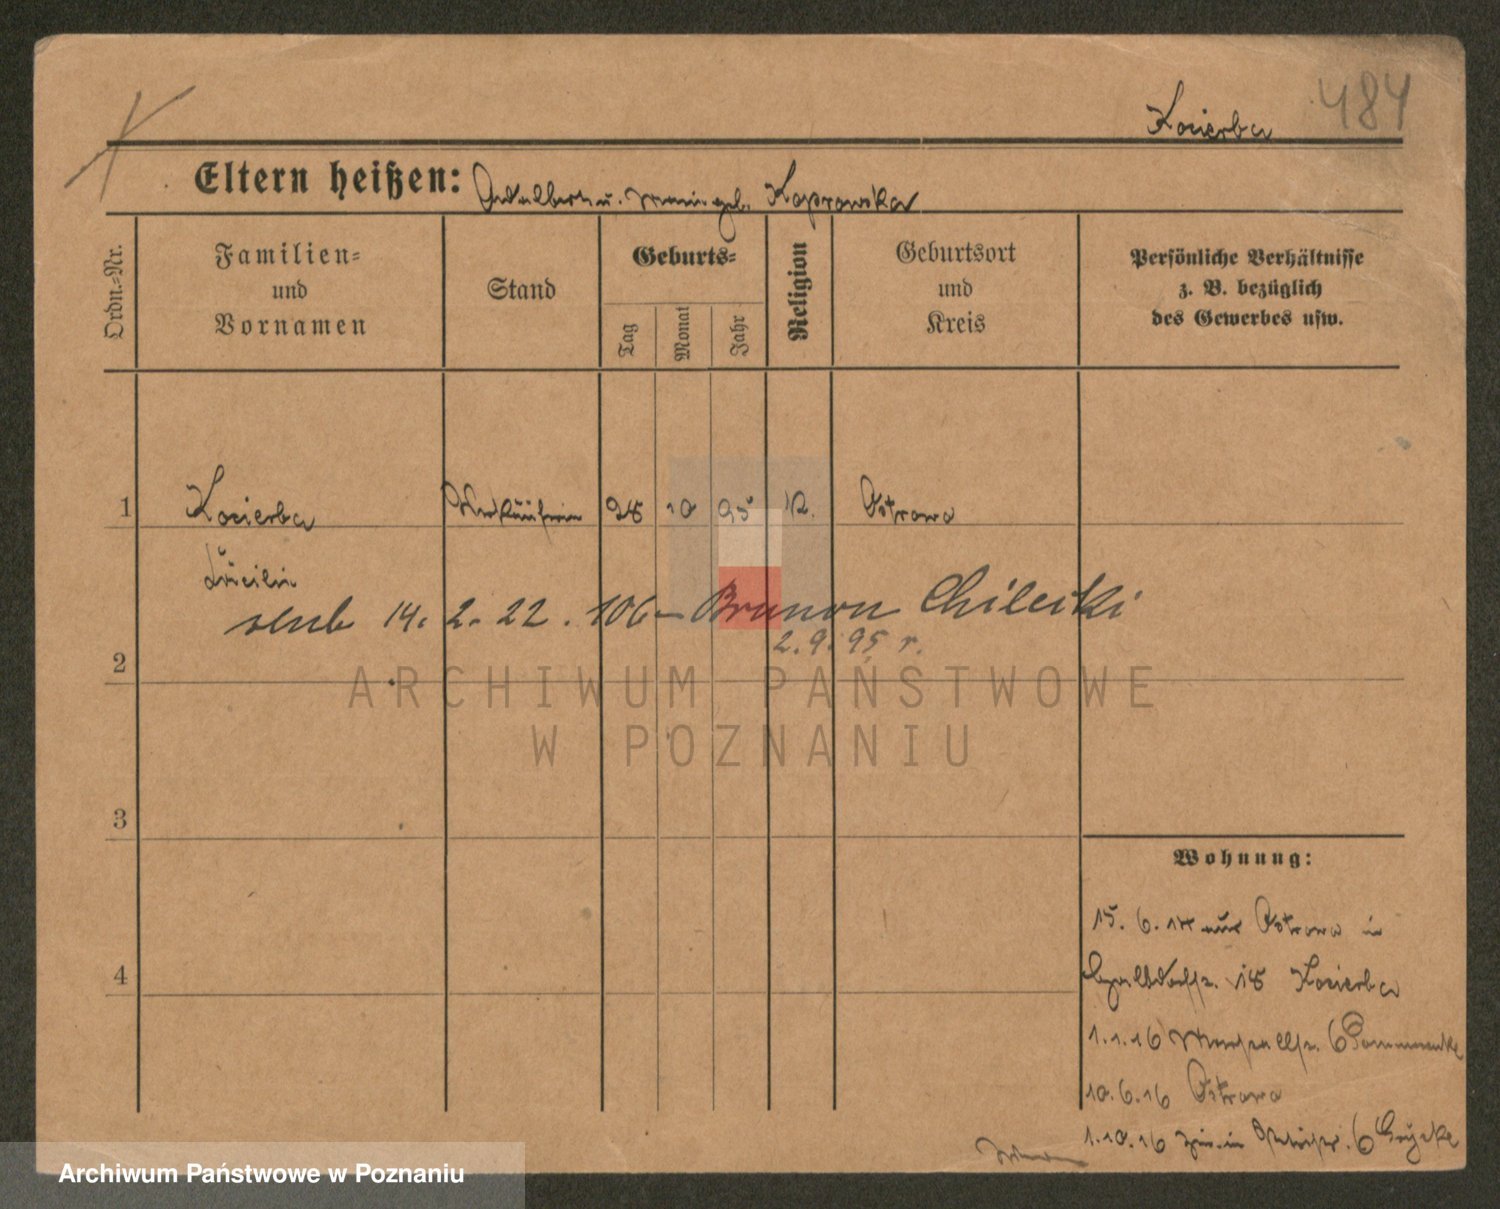 Kocierba 484
Eltern heißen: Adalbert u. Marie geb. Koprowska
Ordn.-Nr.
Familien-
und
Vornamen
Stand
Geburts-
Tag
Monat
Jahr
Religion
Geburtsort
und
Kreis
Persönliche Verhältnisse
z. B. bezüglich
des Gewerbes usw.
1 Kocierba Verkäuferin 28 10 95 k. Ostrowo
ślub 14. 2. 22. 106 Brunon Chilecki
2. 9. 95 r.
2
3
4
Wohnung:
15. 6. 14 aus Ostrowo in
18 Kocierba
1. 1. 16 6
10. 6. 16 Ostrowo
1. 10. 16 in 6
ARCHIWUM PAŃSTWOWE
W POZNANIU
Archiwum Państwowe w Poznaniu